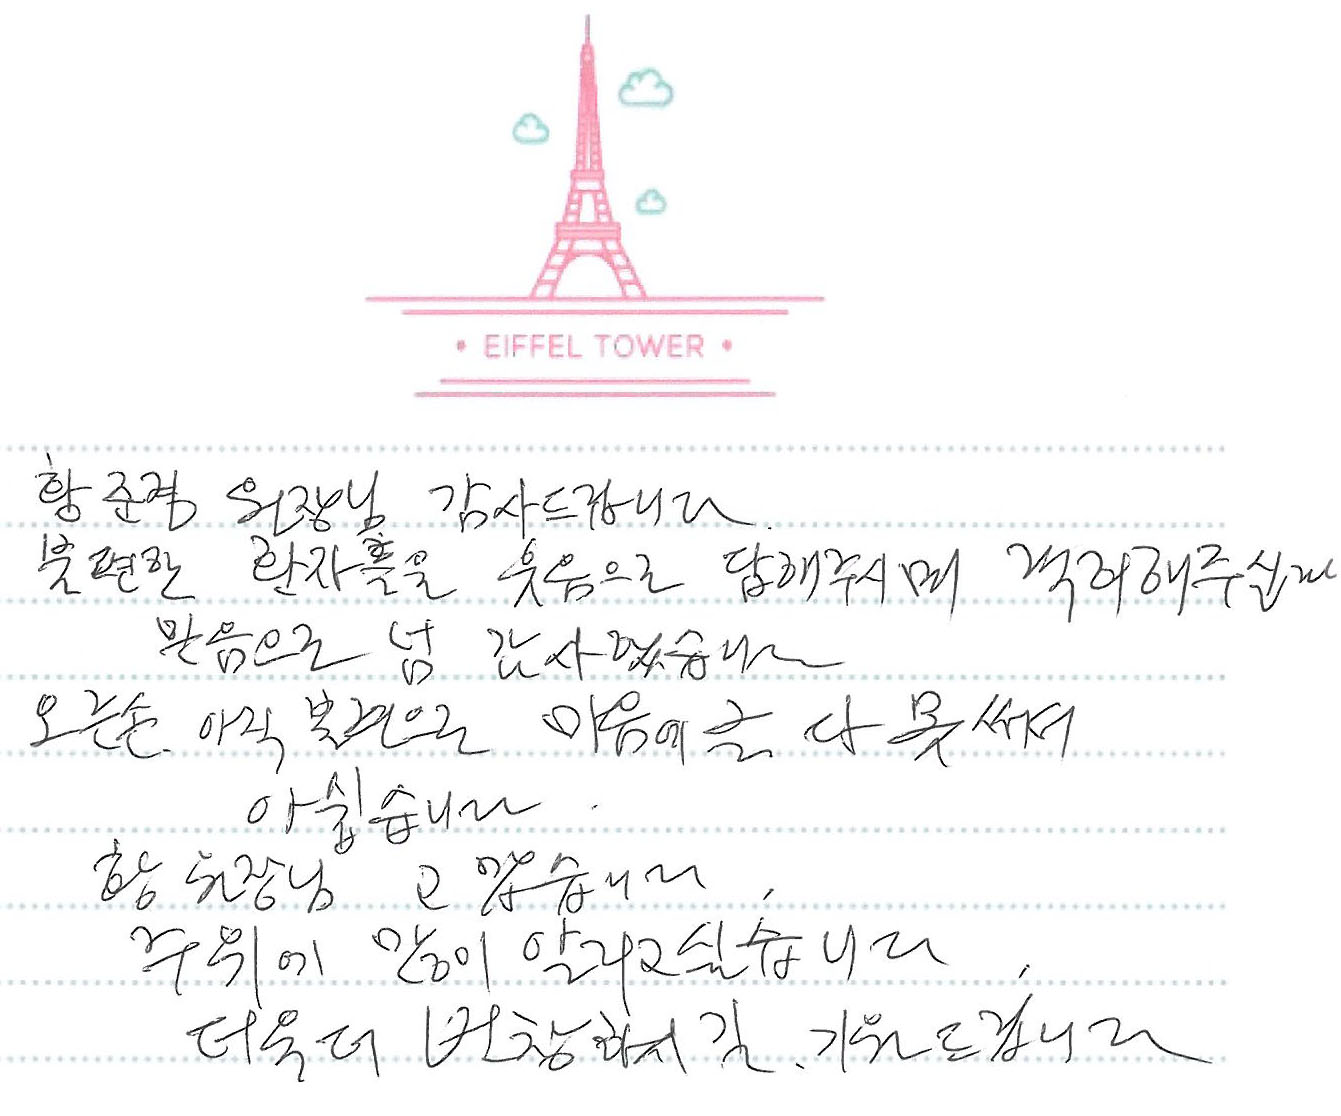 • EIFFEL TOWER •
황준경 원장님 감사드립니다.
불편한 환자들을 웃음으로 답해주시며 격려해주신
믿음으로 넘 감사했습니다
오른손. 아직 불편으로 마음에 글 다 못써서
아쉽습니다.
황원장님 고맙습니다.
주위에 많이 알리고싶습니다.
더욱더 번창하시길. 기원드립니다